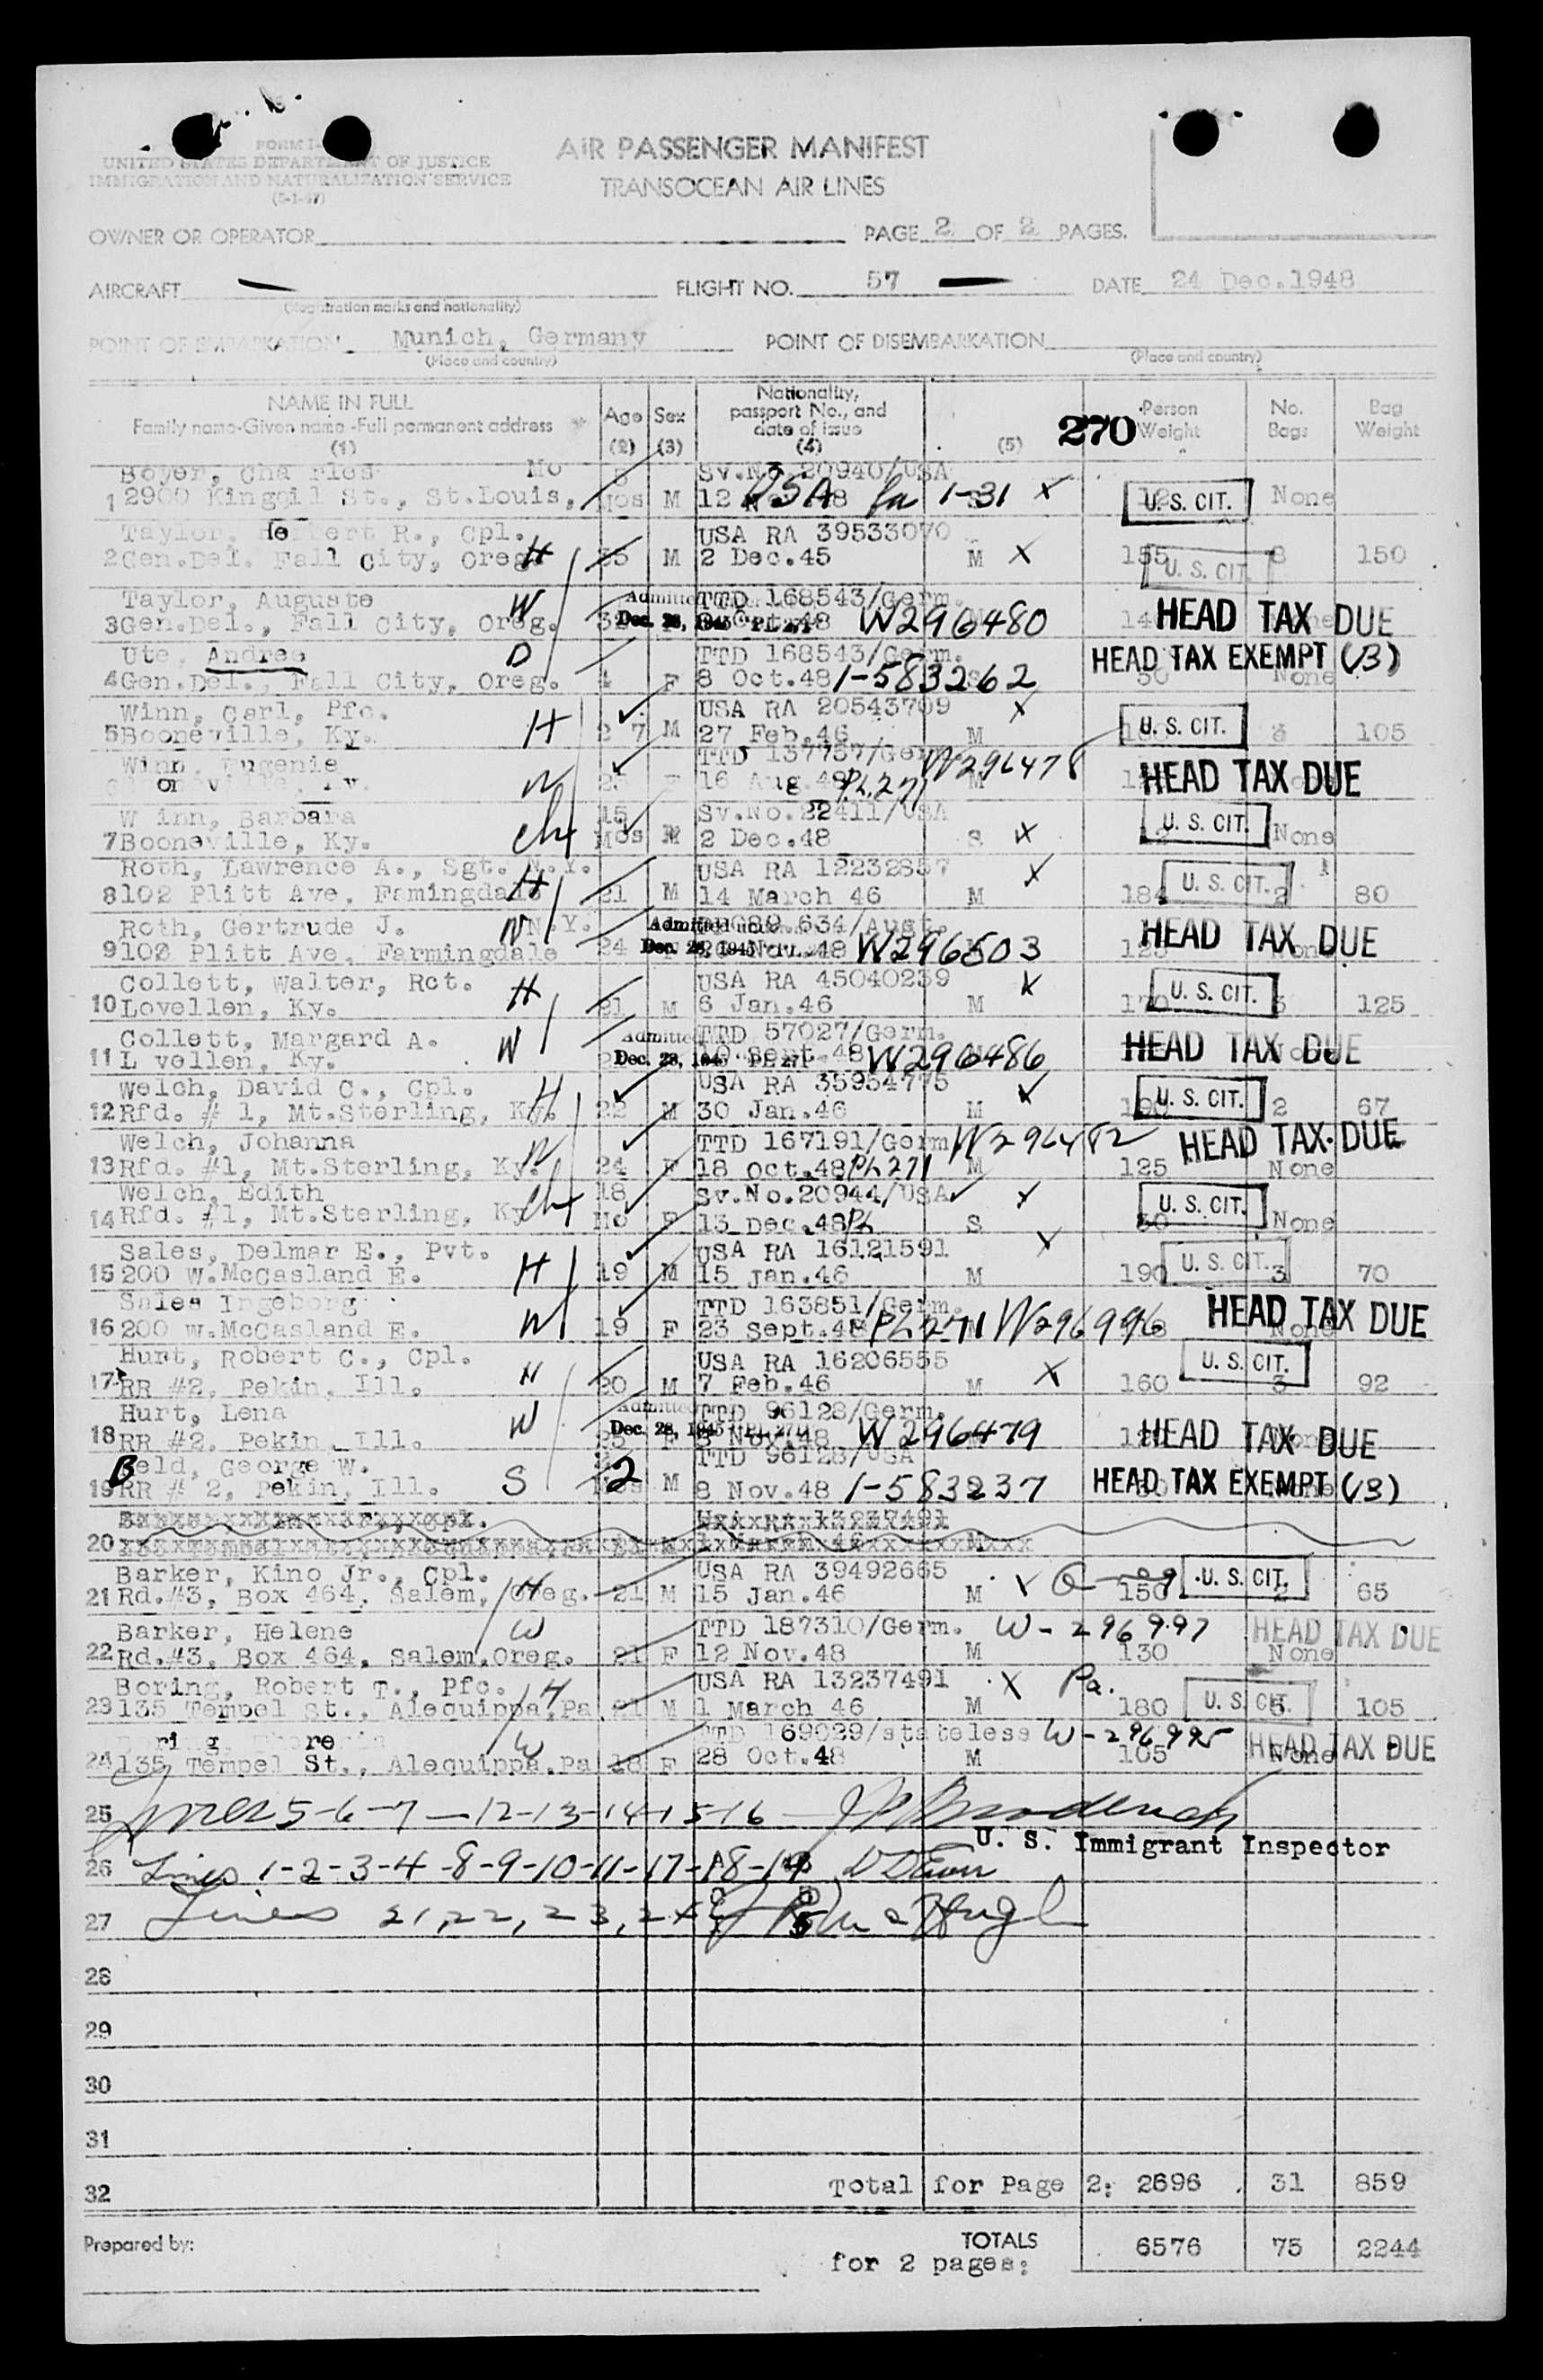 FORM I-
UNITED STATES DEPARTMENT OF JUSTICE
IMMIGRATION AND NATURALIZATION SERVICE
(5-1-47)
AIR PASSENGER MANIFEST
TRANSOCEAN AIR LINES
OWNER OR OPERATOR
PAGE 2 OF 2 PAGES.
AIRCRAFT
(Registration marks and nationality)
FLIGHT NO. 57
DATE 24 Dec.1948
POINT OF EMBARKATION Munich, Germany
(Place and country)
POINT OF DISEMBARKATION
(Place and country)
NAME IN FULL
Family name-Given name -Full permanent address
(1)
Age (2)
Sex (3)
Nationality, passport No., and date of issue
(4)
(5)
270
Person Weight
No. Bags
Bag Weight
Boyer, Charles Mo Sv.No.20940/USA
1 2900 St., St.Louis, Mos M 12 48 USA 1-31 X U. S. CIT. None
Taylor, R., Cpl. USA RA 39533070
2 Gen.Del. Fall City, Oreg. H M 2 Dec.45 M X 155 U. S. CIT. 3 150
Taylor, Auguste W Admitted TTD 168543/Germ.
3 Gen.Del., Fall City, Oreg. Dec. 28, 1945 48 W296480 HEAD TAX DUE
Ute, Andrea D TTD 168543/Germ. HEAD TAX EXEMPT (13)
4 Gen.Del., Fall City, Oreg. 4 F 8 Oct.48 1-583262 50 None
Winn, Carl, Pfc. H USA RA 20543709 X
5 Booneville, Ky. 27 M 27 Feb.46 M U. S. CIT. 3 105
Winn, Eugenie W TTD 137757/Germ W296478
16 Aug.48 Ph.271 M HEAD TAX DUE
W inn, Barbara ch 15 Sv.No.22411/USA
7 Booneville, Ky. Mos M 2 Dec.48 S X U. S. CIT. None
Roth, Lawrence A., Sgt. N.Y. USA RA 12232857 X
8 102 Plitt Ave, Famingdale H 21 M 14 March 46 M 184 U. S. CIT. 2 80
Roth, Gertrude J. W N.Y. Admitted under 634/Aust.
9 102 Plitt Ave, Farmingdale 24 Dec. 28, 1945 Nov.48 W296503 125 HEAD TAX DUE
Collett, Walter, Rct. H USA RA 45040239 X
10 Lovellen, Ky. 21 M 6 Jan.46 M 170 U. S. CIT. 3 125
Collett, Margard A. W Admitted TTD 57027/Germ.
11 L vellen, Ky. Dec. 28, 1945 Sept.48 W296486 HEAD TAX DUE
Welch, David C., Cpl. H USA RA 35954775
12 Rfd. # 1, Mt.Sterling, Ky. 22 M 30 Jan.46 M 190 U. S. CIT. 2 67
Welch, Johanna W TTD 167191/Germ W296482
13 Rfd. #1, Mt.Sterling, Ky. 24 F 18 Oct.48 Ph271 M 125 HEAD TAX DUE None
Welch, Edith ch 18 Sv.No.20944/USA X
14 Rfd. #1, Mt.Sterling, Ky Mo F 13 Dec.48 Ph S 30 U. S. CIT. None
Sales, Delmar E., Pvt. H USA RA 16121591 X
15 200 W.McCasland E. 19 M 15 Jan.46 M 190 U. S. CIT. 3 70
Sales Ingeborg W TTD 163851/Germ.
16 200 W.McCasland E. 19 F 23 Sept.48 Ph271 W296996 HEAD TAX DUE None
Hurt, Robert C., Cpl. H USA RA 16206555
17 RR #2, Pekin, Ill. 20 M 7 Feb.46 M X 160 U. S. CIT. 3 92
Hurt, Lena W Admitted TTD 96128/Germ.
18 RR #2. Pekin, Ill. Dec. 28, 1945 Nov.48 W296479 HEAD TAX DUE
Beld, George W. S 2 TTD 96128/USA
19 RR # 2, Pekin, Ill. Mos M 8 Nov.48 1-583237 HEAD TAX EXEMPT (13)
20
Barker, Kino Jr., Cpl. H USA RA 39492665
21 Rd.#3, Box 464, Salem, Oreg. 21 M 15 Jan.46 M X 150 U. S. CIT. 2 65
Barker, Helene W TTD 187310/Germ. W-296997
22 Rd.#3, Box 464, Salem,Oreg. 21 F 12 Nov.48 M 130 HEAD TAX DUE None
Boring, Robert T., Pfc. H USA RA 13237491 X Pa.
23 135 Tempel St., Alequippa,Pa 21 M 1 March 46 M 180 U. S. CIT. 5 105
W TTD 169029/stateless W-296995
24 135 Tempel St., Alequippa.Pa 18 F 28 Oct.48 M 105 HEAD TAX DUE None
25 Lines 5-6-7-12-13-14-15-16
U. S. Immigrant Inspector
26 Lines 1-2-3-4-8-9-10-11-17-18-19
27 Lines 21,22,23,24
28
29
30
31
32 Total for Page 2: 2696 31 859
Prepared by:
TOTALS for 2 pages: 6576 75 2244